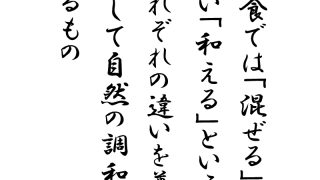 食では「混ぜる」
い「和える」という
れぞれの違いを
して自然の調和
るもの